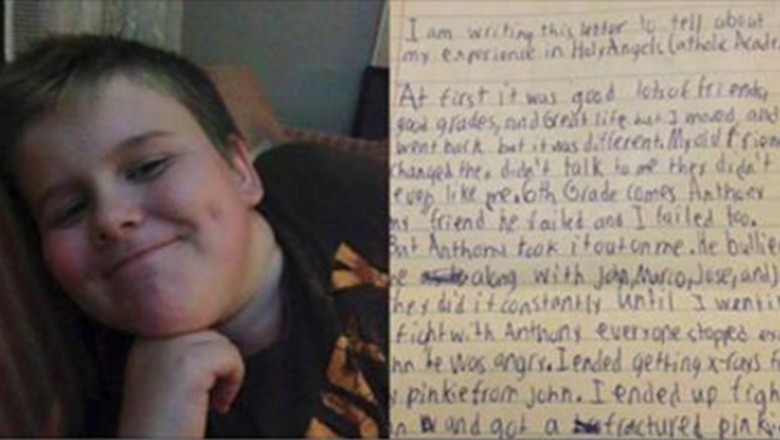 I am writing this letter to tell about
my experience in Holy Angels Catholic Acade
At first it was good lots of friends,
good grades, and Great life but I moved, and
went back but it was different. My old frien
changed they didn't talk to me they didn't
even like me. 6th Grade comes Anthony
my friend he failed and I failed too.
But Anthony took it out on me. He bullie
me along with John, Marco, Jose, and
hey did it constantly until I went i
fight with Anthony everyone stopped
he was angry. I ended getting x-rays
pinkie from John. I ended up figh
and got a fractured pink